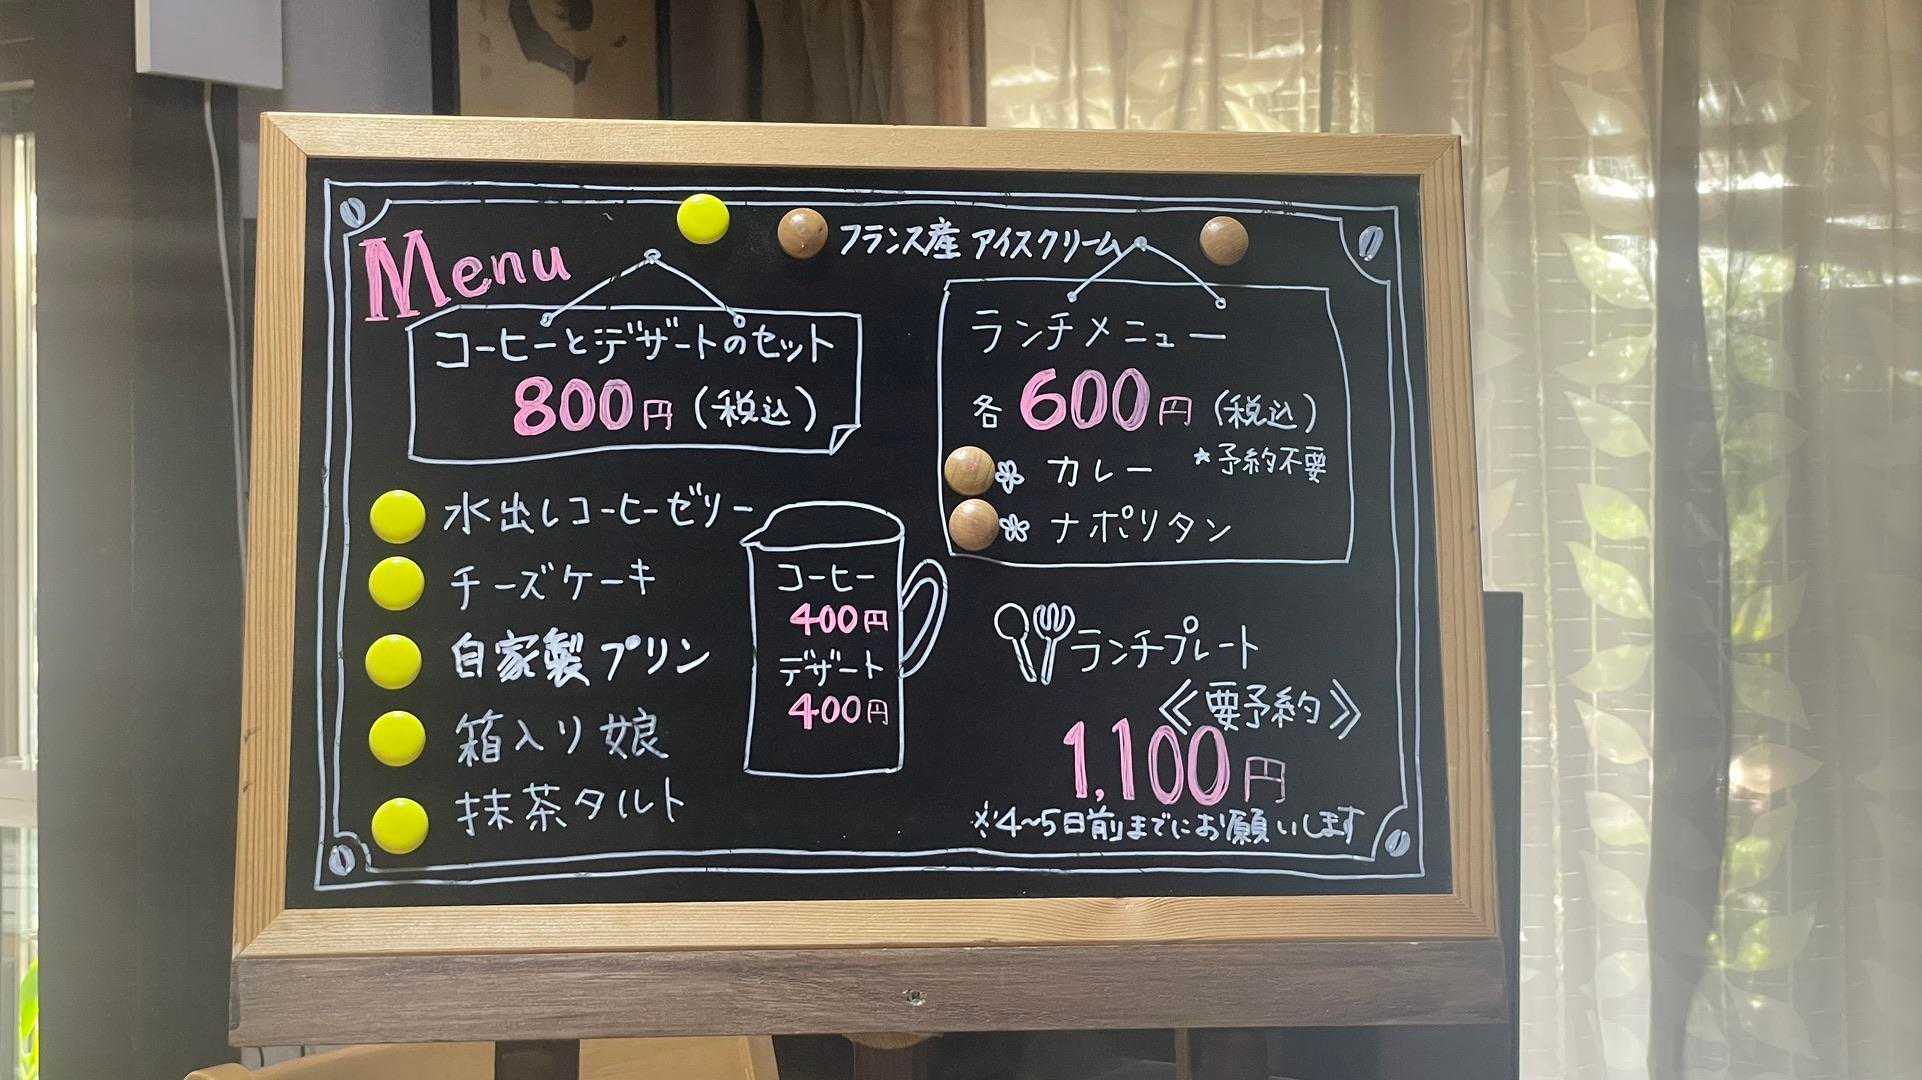 Menu
フランス産 アイスクリーム
コーヒーとデザートのセット
800円(税込)
水出しコーヒーゼリー
チーズケーキ
自家製プリン
箱入り娘
抹茶タルト
コーヒー
400円
デザート
400円
ランチメニュー
各600円(税込)
*予約不要
カレー
ナポリタン
ランチプレート
《要予約》
1,100円
※4~5日前までにお願いします